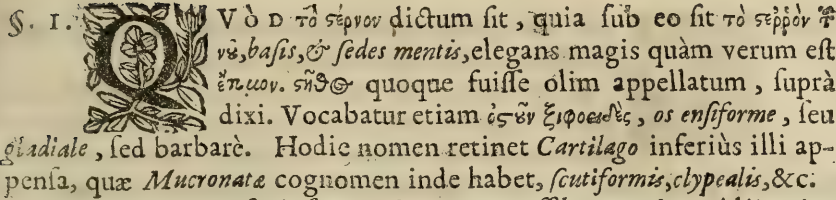 §. 1. QVòD τὸ στέρνον dictum sit, quia sub eo sit τὸ στεῤῥὸν τῦ
νῦ, basis, & sedes mentis, elegans magis quàm verum est
ἔτυμον. στῆθος quoque fuisse olim appellatum, suprà
dixi. Vocabatur etiam ὀστῦν ξιφοειδὲς, os ensiforme, seu
gladiale, sed barbarè. Hodie nomen retinet Cartilago inferiùs illi ap-
pensa, quæ Mucronatæ cognomen inde habet, scutiformis, clypealis, &c.